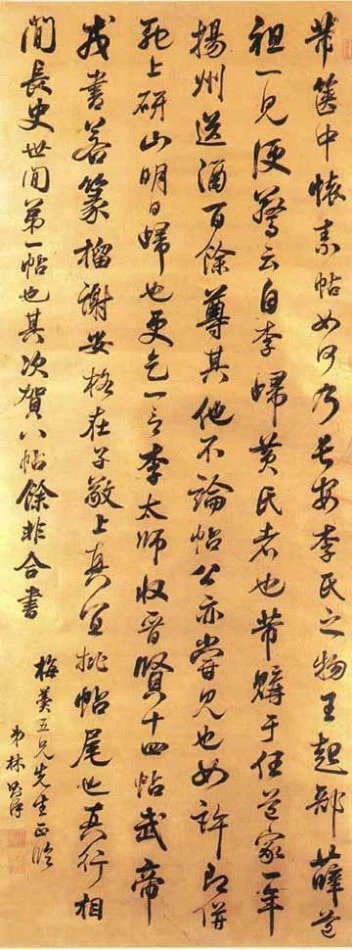 芾篋中懷素帖如何乃長安李氏之物王起部薛道
祖一見便驚云自李歸黃氏者也芾購于任道家一年
揚州送酒百餘尊其他不論帖公亦嘗見也如許即併
馳上研山明日歸也更乞一言李太師收晉賢十四帖武帝
戎書若篆榴謝安格在子敬上真宜批帖尾也真行相
間長史世間第一帖也其次賀八帖餘非合書
梅羹五兄先生正
弟林則徐